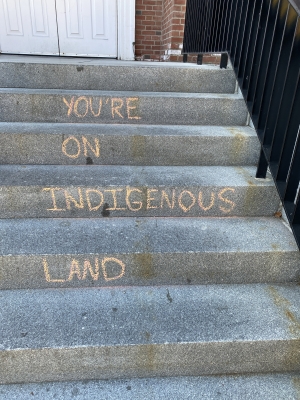 YOU'RE
ON
INDIGENOUS
LAND